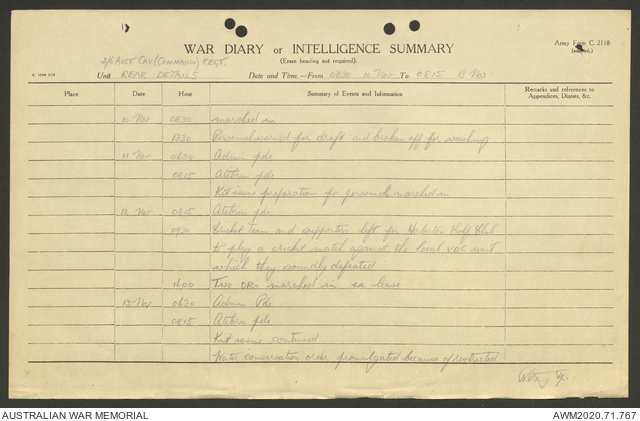 WAR DIARY or INTELLIGENCE SUMMARY
Army Form C. 2118
(Erase heading not required).
2/6 Aust Cav (Commando) Regt.
Unit REAR DETAILS Date and Time.—From 0830 10 Nov To 0815 Nov
Place Date Hour Summary of Events and Information Remarks and references to
Appendices, Diaries, &c.
10 Nov 0830 marched in
1330 Personnel warned for draft and broken off for washing
11 Nov 0630 Admin pde
0815 Atebrin pde
Kit issue preparation for personnel marched in
12 Nov 0815 Atebrin pde
0930 Cricket team and supporters left for Herberton Golf Club
to play a cricket match against the local VDC unit
which they soundly defeated
1600 Two ORs marched in ex leave
13 Nov 0630 Admin Pde
0815 Atebrin pde
Kit issue continued
Water conservation order promulgated because of restricted
AUSTRALIAN WAR MEMORIAL
AWM2020.71.767